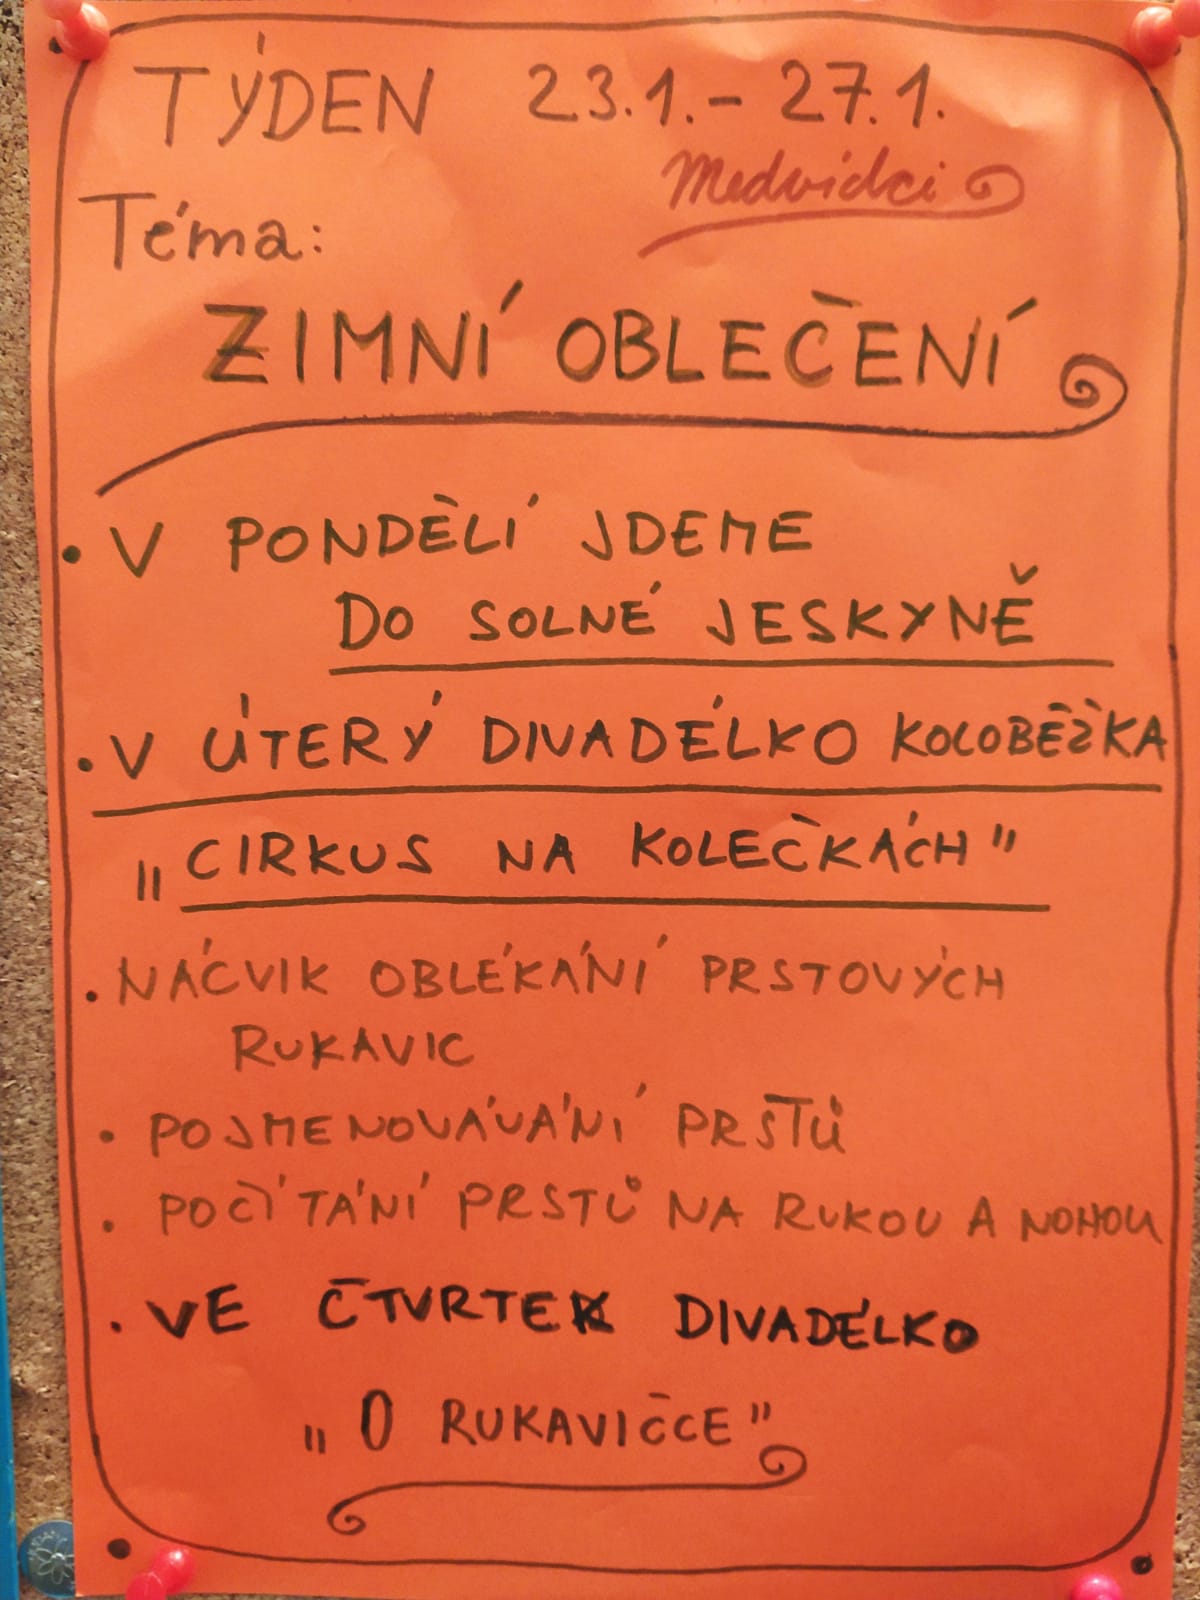 TÝDEN 23.1. - 27.1.
Medvídci
Téma:
ZIMNÍ OBLEČENÍ
• V PONDĚLÍ JDEME
DO SOLNÉ JESKYNĚ
• V ÚTERÝ DIVADÉLKO KOLOBĚŽKA
„CIRKUS NA KOLEČKÁCH"
• NÁCVIK OBLÉKÁNÍ PRSTOVÝCH
RUKAVIC
• POJMENOVÁVÁNÍ PRSTŮ
• POČÍTÁNÍ PRSTŮ NA RUKOU A NOHOU
• VE ČTVRTEK DIVADÉLKO
„O RUKAVIČCE"